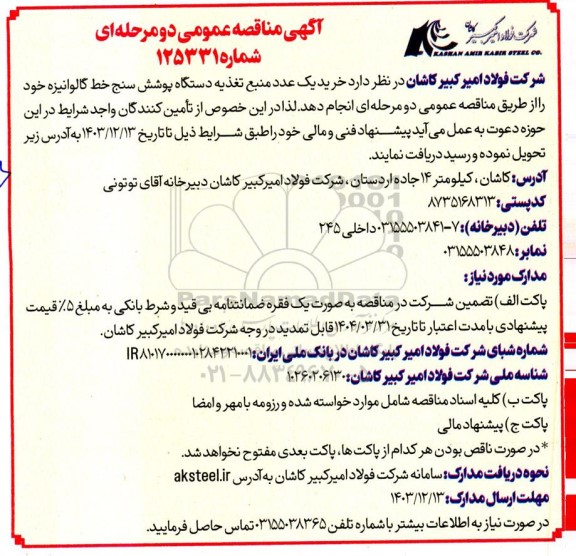 شرکت فولاد امیرکبیر کاشان
KASHAN AMIR KABIR STEEL CO.
آگهی مناقصه عمومی دو مرحله ای
شماره ۱۲۵۳۳۱
شرکت فولاد امیر کبیر کاشان در نظر دارد خرید یک عدد منبع تغذیه دستگاه پوشش سنج خط گالوانیزه خود
را از طریق مناقصه عمومی دو مرحله ای انجام دهد. لذا در این خصوص از تأمین کنندگان واجد شرایط در این
حوزه دعوت به عمل می آید پیشنهاد فنی و مالی خود را طبق شرایط ذیل تا تاریخ ۱۴۰۳/۱۲/۱۳ به آدرس زیر
تحویل نموده و رسید دریافت نمایند.
آدرس: کاشان، کیلومتر ۱۴ جاده اردستان، شرکت فولاد امیرکبیر کاشان دبیرخانه آقای توتونی
کدپستی: ۸۷۳۵۱۶۸۳۱۳
تلفن (دبیرخانه): ۷-۰۳۱۵۵۵۰۳۸۴۱ داخلی ۲۴۵
نمابر: ۰۳۱۵۵۵۰۳۸۴۸
مدارک مورد نیاز:
پاکت الف) تضمین شرکت در مناقصه به صورت یک فقره ضمانتنامه بی قید و شرط بانکی به مبلغ ۵٪ قیمت
پیشنهادی با مدت اعتبار تا تاریخ ۱۴۰۴/۰۳/۳۱ قابل تمدید در وجه شرکت فولاد امیرکبیر کاشان.
شماره شبای شرکت فولاد امیر کبیر کاشان در بانک ملی ایران:
شناسه ملی شرکت فولاد امیر کبیر کاشان: ۱۰۲۶۰۲۰۶۱۳۰
پاکت ب) کلیه اسناد مناقصه شامل موارد خواسته شده و رزومه با مهر و امضا
پاکت ج) پیشنهاد مالی
* در صورت ناقص بودن هر کدام از پاکت ها، پاکت بعدی مفتوح نخواهد شد.
نحوه دریافت مدارک: سامانه شرکت فولاد امیرکبیر کاشان به آدرس aksteel.ir
مهلت ارسال مدارک: ۱۴۰۳/۱۲/۱۳
در صورت نیاز به اطلاعات بیشتر با شماره تلفن ۰۳۱۵۵۰۳۸۳۶۵ تماس حاصل فرمایید.